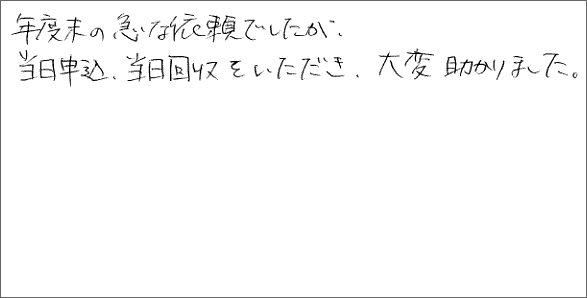 年度末の急な依頼でしたが、
当日申込、当日回収をいただき、大変助かりました。